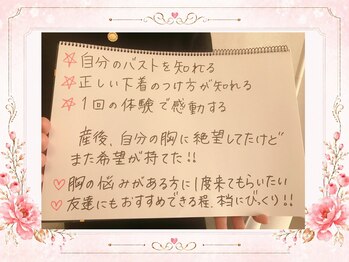 ☆自分のバストを知れる
☆正しい下着のつけ方が知れる
☆1回の体験で感動する
産後、自分の胸に絶望してたけど
また希望が持てた!!
♡胸の悩みがある方に1度来てもらいたい
♡友達にもおすすめできる程、本当にびっくり!!